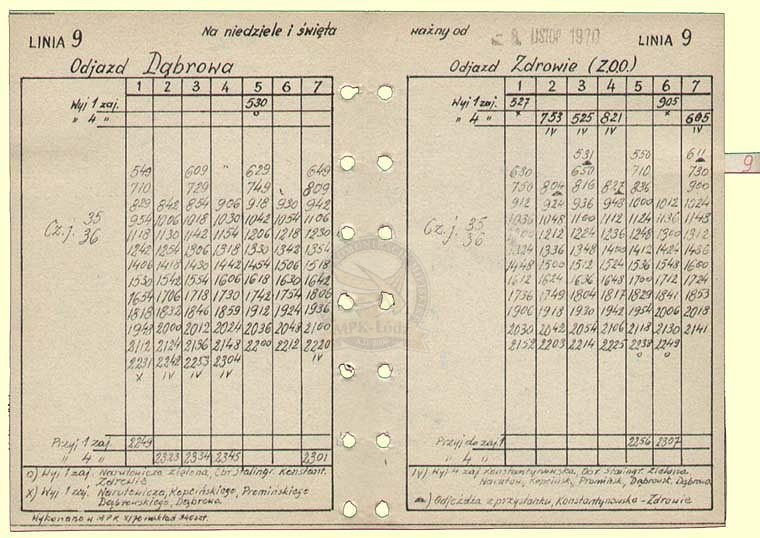 LINIA 9
Na niedziele i święta
Odjazd Dąbrowa
1 2 3 4 5 6 7
Wyj 1 zaj. 530
" 4 "
549 609 629 649
710 729 749 809
829 842 854 906 918 930 942
954 1006 1018 1030 1042 1054 1106
1118 1130 1142 1154 1206 1218 1230
1242 1254 1306 1318 1330 1342 1354
1406 1418 1430 1442 1454 1506 1518
1530 1542 1554 1606 1618 1630 1642
1654 1706 1718 1730 1742 1754 1806
1818 1832 1846 1859 1912 1924 1936
1948 2000 2012 2024 2036 2048 2100
2112 2124 2136 2148 2200 2212 2220
2231 2242 2253 2304
x IV IV IV IV
Cz.j. 35
36
Przyj 1 zaj 2249
" 4 " 2323 2334 2345 2301
o) Wyj 1 zaj. Narutowicza Zielona, Obr Stalingr. Konstant.
Zdrowie
X) Wyj 1 zaj. Narutowicza, Kopcińskiego, Promińskiego
Dąbrowskiego, Dąbrowa
Wykonano w MPK
ważny od
LISTOP 1970
LINIA 9
Odjazd Zdrowie (Z.O.O.)
1 2 3 4 5 6 7
Wyj 1 zaj. 527 905
" 4 " 753 525 821 605
IV IV IV IV
531 550 611
630 650 710 730
750 804 816 827 836 900
912 924 936 948 1000 1012 1024
1036 1048 1100 1112 1124 1136 1148
1200 1212 1224 1236 1248 1300 1312
1324 1336 1348 1400 1412 1424 1436
1448 1500 1512 1524 1536 1548 1600
1612 1624 1636 1648 1700 1712 1724
1736 1749 1804 1817 1829 1841 1853
1906 1918 1930 1942 1954 2006 2018
2030 2042 2054 2106 2118 2130 2141
2152 2203 2214 2225 2238 2249
o o
Cz.j. 35
36
Przyj do zaj 1 2256 2307
" 4 "
IV) Wyj 4 zaj Konstantynowska, Obr Stalingr. Zielona
Narutow, Kopcińsk, Promińsk, Dąbrowsk, Dąbrowa
) Odjeżdża z przystanku, Konstantynowska - Zdrowie
9
MPK-Łódź